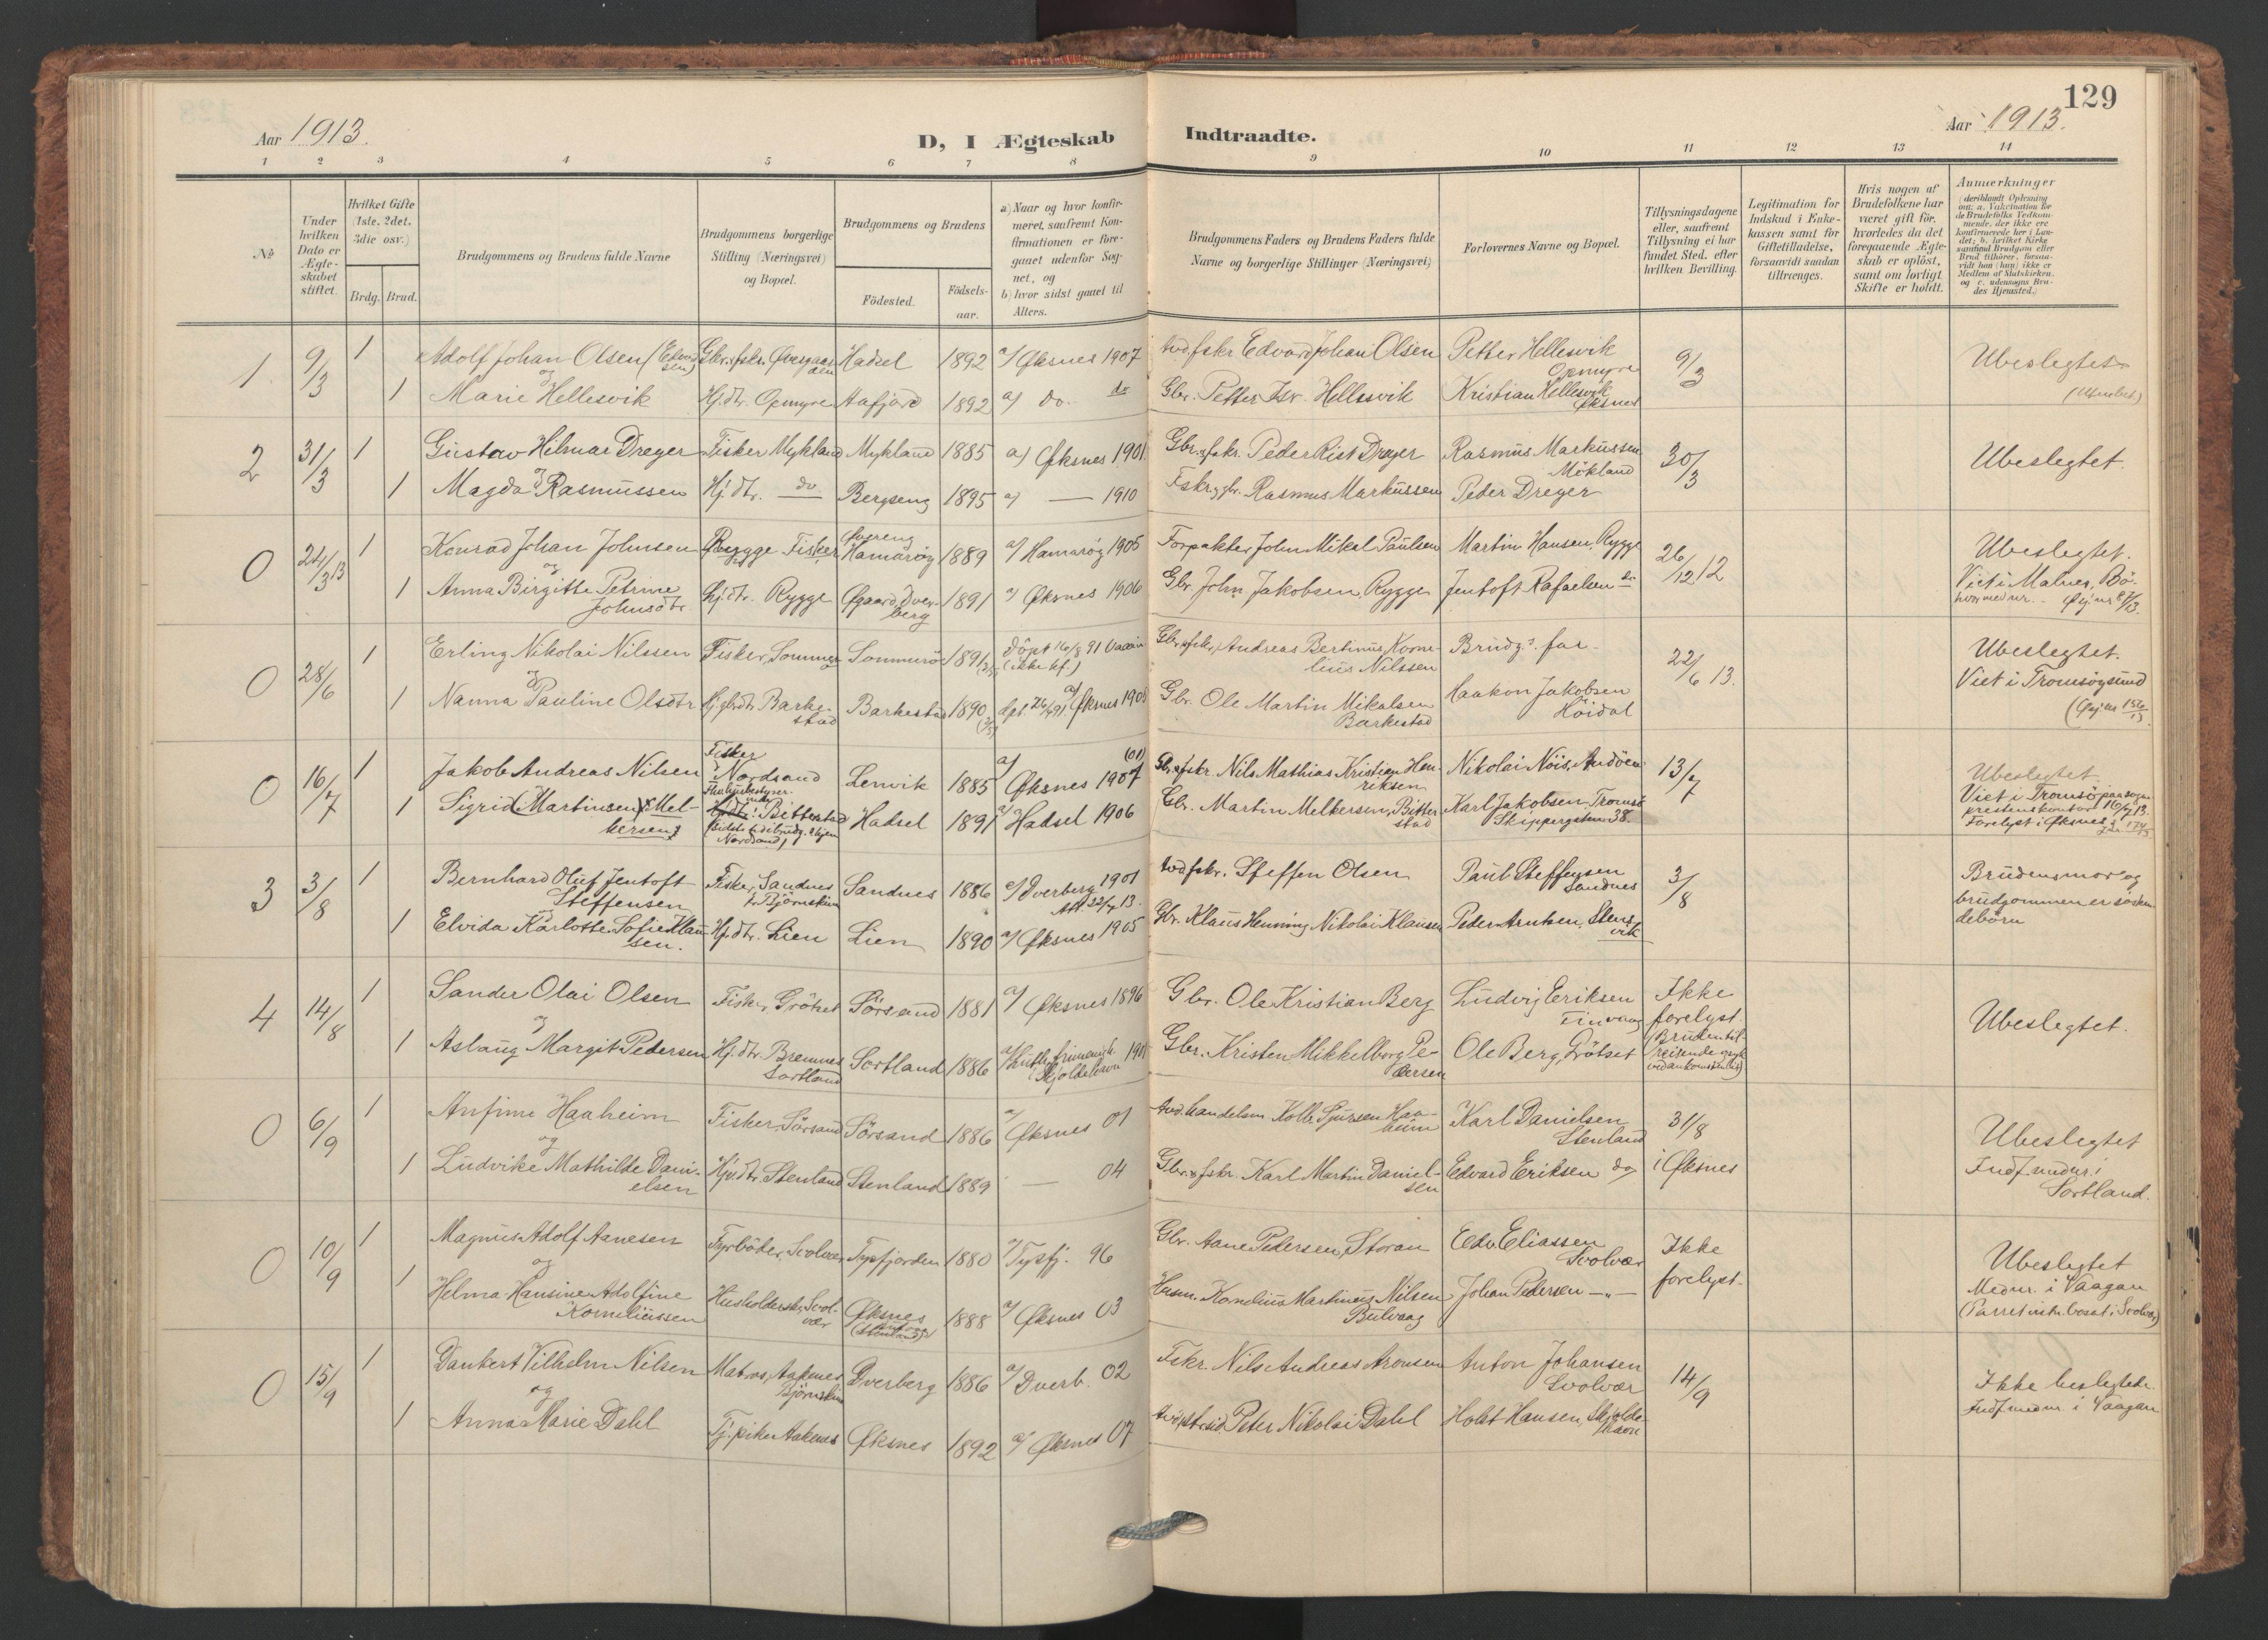 129
Aar 1913.
D, I Ægteskab Indtraadte.
Aar 1913.
1 2 3 4 5 6 7 8 9 10 11 12 13 14
No
Under hvilken Dato er Ægteskabet stiftet.
Hvilket Gifte (1ste, 2det, 3die osv.)
Brdg. Brud.
Brudgommens og Brudens fulde Navne
Brudgommens borgerlige Stilling (Næringsvei) og Bopæl.
Brudgommens og Brudens
Fødested. Fødselsaar.
a) Naar og hvor konfirmeret, saafremt Konfirmationen er foregaaet udenfor Sognet, og
b) hvor sidst gaaet til Alters.
Brudgommens Faders og Brudens Faders fulde Navne og borgerlige Stillinger (Næringsvei)
Forlovernes Navne og Bopæl.
Tillysningsdagene eller, saafremt Tillysning ei har fundet Sted, efter hvilken Bevilling.
Legitimation for Indskud i Enkekassen samt for Giftetilladelse, forsaavidt saadan tiltrænges.
Hvis nogen af Brudefolkene har været gift før, hvorledes da det foregaaende Ægteskab er opløst, samt om lovligt Skifte er holdt.
Anmærkninger
(deriblandt Oplysning om: a. Vakcination for de Brudefolks Vedkommende, der ikke ere konfirmerede her i Landet; b. hvilket Kirkesamfund Brudgom eller Brud tilhører, forsaavidt han (hun) ikke er Medlem af Statskirken, og c. udensogns Brudes Hjemsted.)
1. 9/3 1 Adolf Johan Olsen (Edvardsen) Gbr. & fskr. Hadsel 1892 a/ Øksnes 1907 fskr Edvard Johan Olsen Petter Hellesvik Opmyre 9/3 Ubeslegtet
og
1 Marie Hellesvik Hj.dtr. Opmyre Aafjord 1892 a) do. do Gbr. Petter Isr. Hellesvik Kristian Hellesvik Øksnes
2 31/3 1 Gustav Hilmar Dreyer Fisker Mykland Mykland 1885 a) Øksnes 1901 Gbr. & fskr. Peder Rist Dreyer Rasmus Markussen Mökland 30/3 Ubeslegtet.
og
1 Magda Rasmussen Hj.dtr. do Bergseng 1895 a) — 1910 Fskr. & gbr. Rasmus Markussen Peder Dreyer
0 24/3 13 1 Konrad Johan Johnsen Rygge Fisker Hamarøy 1889 a/ Hamarøy 1905 Forpakter John Mikal Paulsen Martin Hansen, Rygge 26/12 12 Ubeslegtet.
og
1 Anna Birgitte Petrine Johnsdtr. Hj.dtr. Rygge Øgaard, Dverberg 1891 a) Øksnes 1906 Gbr. John Jakobsen, Rygge Jentoft Rafaelsen do Viet i Malnes, Bö.
0 28/6 1 Erling Nikolai Nilssen Fisker, Sommerö Sommerö 1891 Döpt 16/8 91 (ikke kf.) Gbr. & fskr. Andreas Bertinus Kornelius Nilssen Brudg.s far. 22/6 13. Ubeslegtet.
og
1 Nanna Pauline Olsdtr Barkestad Barkestad 1890 a) Øksnes Gbr. Ole Martin Mikalsen Barkestad Haakon Jakobsen Höidal Viet i Tromsøysund
0 16/7 1 Jakob Andreas Nilsen Fisker Nordsand Lenvik 1885 a/ Øksnes 1907 (01) Gbr. & fskr. Nils Mathias Kristian Henriksen Nikolai Nöis, Andöen 13/7 Ubeslegtet.
1 Sigrid (Martinsen) Melkersen Bitterstad Hadsel 1891 a/ Hadsel 1906 Gbr. Martin Melkersen, Bitterstad Karl Jakobsen, Tromsö Skippergaten 38. Viet i Tromsö paa sogneprestens kontor 16/7 13. Forelyst i Øksnes
3 3/8 1 Bernhard Oluf Jentoft Steffensen Fisker, Sandnes Björnskinn Sandnes 1886 a/ Dverberg 1901 Att. 22/7 13. fskr. Steffen Olsen Paul Steffensen Sandnes 3/8 Brudens mor og brudgommen er söskendebörn
og
1 Elvida Karlotte Sofie Klausen. Hj.dtr. Lien Lien 1890 a/ Øksnes 1905 Gbr. Klaus Henning Nikolai Klausen Peder Arntsen, Stensvik
4 14/8 1 Sander Olai Olsen Fisker, Grötset Sörsand 1881 a/ Øksnes 1896 Gbr. Ole Kristian Berg Ludvig Eriksen Finvaag Ikke forelyst. Ubeslegtet.
og
1 Aslaug Margit Pedersen Hj.dtr. Bremnes Sortland Sortland 1886 a/ Luth. frimenigh. i Skjoldehavn 1901 Gbr. Kristen Mikkelborg Pedersen Ole Berg, Grötset (Bruden tilreisende og syk ved ankomsten)
0 6/9 1 Anfinn Haaheim Fisker, Sörsand Sörsand 1886 a/ Øksnes 01 handelsm. Kolb. Sjursen Haaheim Karl Danielsen Stenland 31/8 Ubeslegtet
og
1 Ludvike Mathilde Danielsen Hj.dtr. Stenland Stenland 1889 — 04 Gbr. & fskr. Karl Martin Danielsen Edvard Eriksen do i Øksnes Indf. uden nr. i Sortland.
0 10/9 1 Magnus Adolf Aanesen Fyrböder, Svolvær Tysfjorden 1880 a/ Tysfj. 96 Gbr. Aane Pedersen, Storan Edv. Eliassen Svolvær Ikke forelyst. Ubeslegtet
og
1 Helma Hansine Adolfine Korneliussen Husholderske, Svolvær Øksnes 1888 a/ Øksnes 03 Husm. Kornelius Martinus Nilsen Bulvaag Johan Pedersen — " — Med nr. i Vaagan (Parret bosat i Svolvær)
0 15/9 1 Dankert Vilhelm Nilsen Matros, Aaknes Björnskinn Dverberg 1886 a/ Dverb. 02 Fskr. Nils Andreas Aronsen Anton Johansen Svolvær 14/9 Ikke beslegtede.
og
1 Anna Marie Dahl Tj.pike Aaknes Øksnes 1892 a/ Øksnes 07 Peter Nikolai Dahl Holst Hansen, Skjoldehavn Indf. med nr. i Vaagan